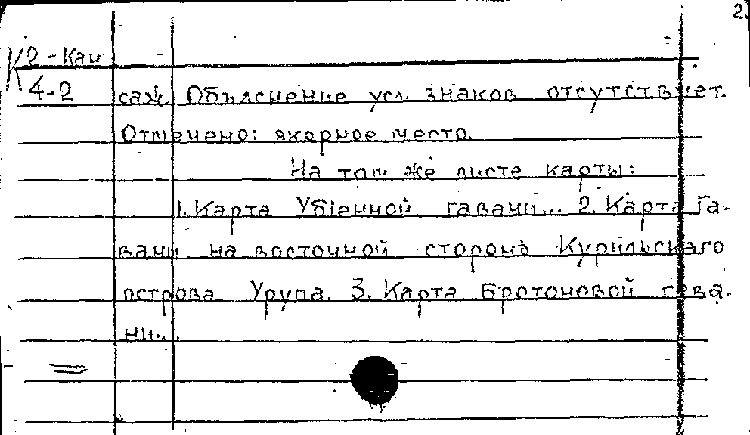 2.
К 2-Кам
4-2
саж. Объяснение усл. знаков отсутствует.
Отмечено: якорное место.
На том же листе карты:
1. Карта Убiенной гавани... 2. Карта га-
вани на восточной стороне Курильскаго
острова Урупа. 3. Карта Бротоновой гава-
ни...